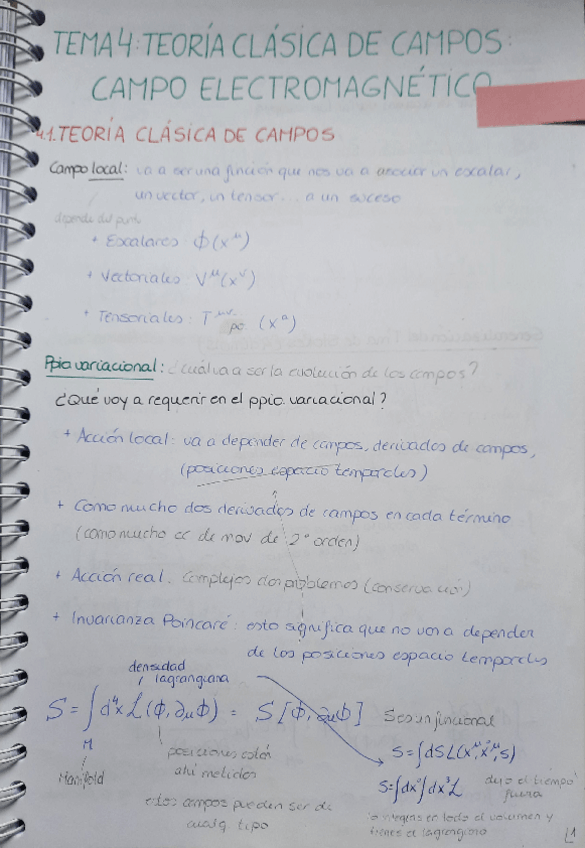 TEMA 4: TEORÍA CLÁSICA DE CAMPOS:
CAMPO ELECTROMAGNÉTICO
4.1. TEORÍA CLÁSICA DE CAMPOS
Campo local: va a ser una función que nos va a asociar un escalar,
un vector, un tensor... a un suceso
depende del punto
+ Escalares ϕ(x^μ)
+ Vectoriales V^μ(x^ν)
+ Tensoriales: T^μν.. ρσ (x^α)
Ppio variacional: ¿cuál va a ser la evolución de los campos?
¿Qué voy a requerir en el ppio. variacional?
+ Acción local: va a depender de campos, derivadas de campos,
(posiciones espacio temporales)
+ Como mucho dos derivadas de campos en cada término
(como mucho ec de mov de 2º orden)
+ Acción real. Complejos dan problemas (conservación)
+ Invarianza Poincaré: esto significa que no va a depender
de las posiciones espacio temporales
densidad
lagrangiana
S = ∫ d⁴x ℒ(ϕ, ∂μϕ) = S[ϕ, ∂μϕ] S es un funcional
M
Manifold
posiciones están
ahí metidas
S = ∫ds L(x^μ, ẋ^μ, s)
S = ∫dx⁰∫dx³ ℒ dejo el tiempo
fuera
estos campos pueden ser de
cualq. tipo
integras en todo el volumen y
tienes el lagrangiano
1